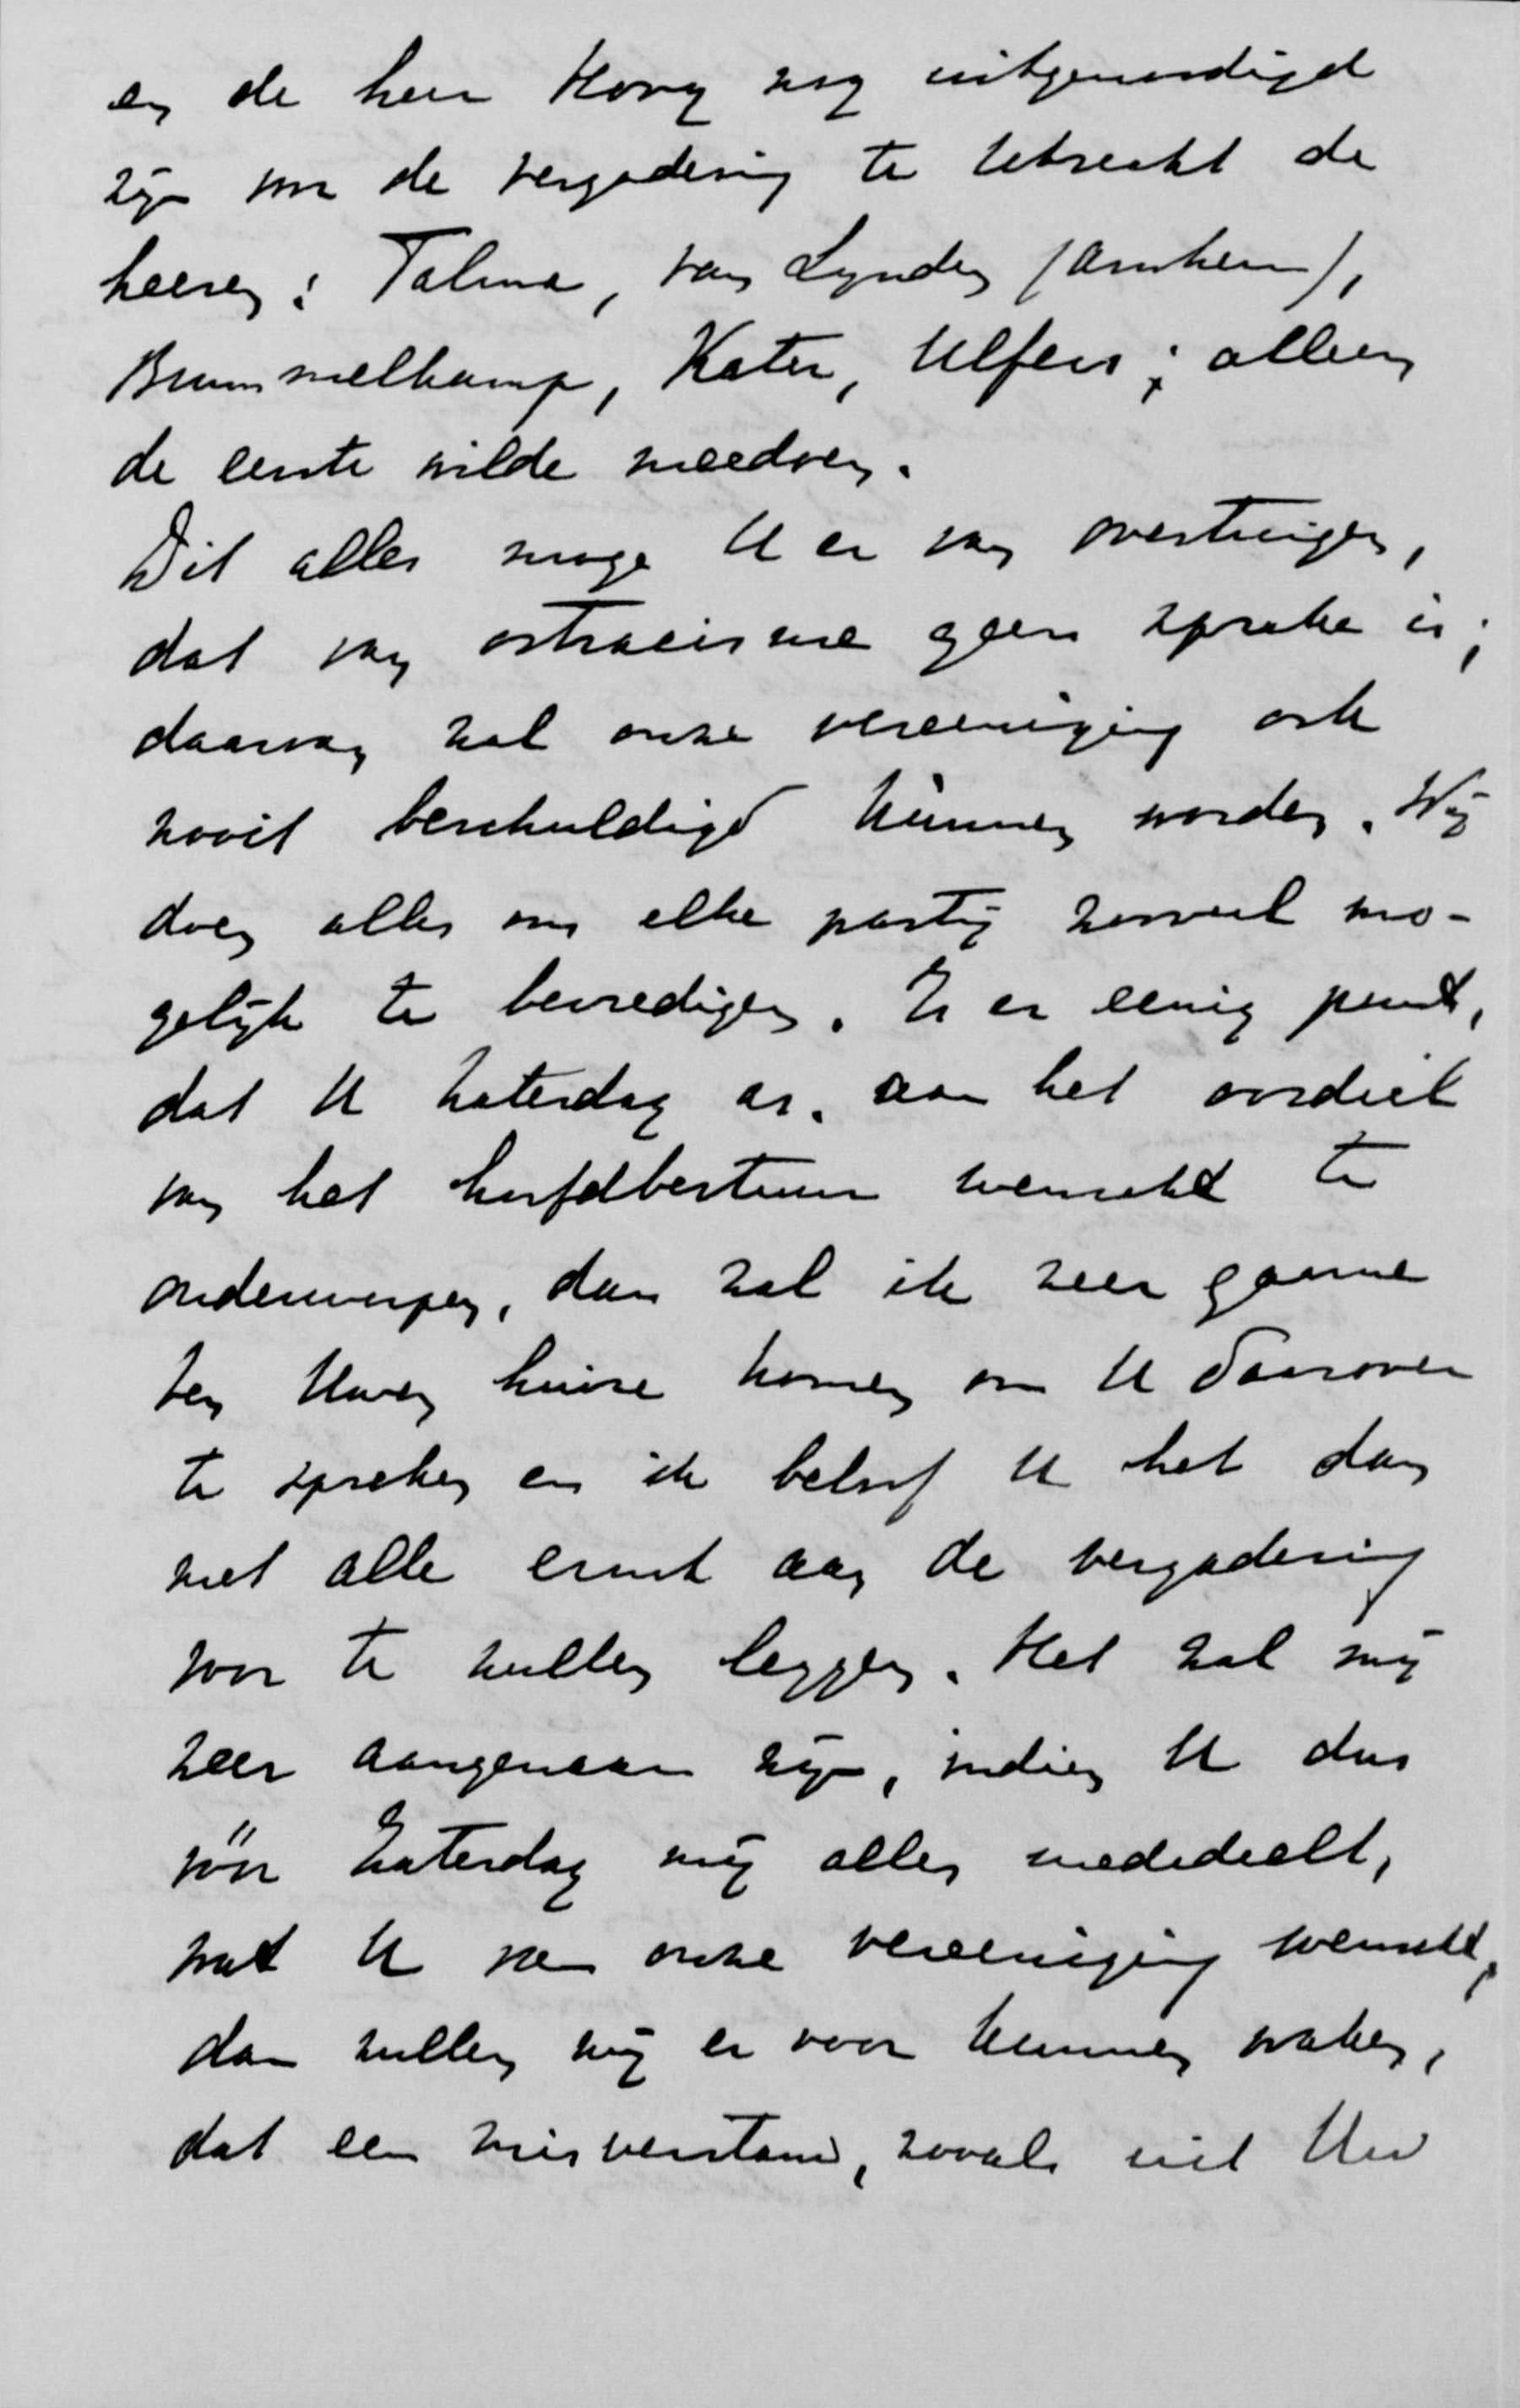 en de heer Hovy nog uitgenoodigd
zijn voor de vergadering te Utrecht de
heeren: Talma, van Lynden (Arnhem),
Brummelkamp, Kater, Ulfers; alleen
de eerste wilde meedoen.
Dit alles moge U er van overtuigen,
dat van ostracisme geen sprake is;
daarvan zal onze vereeniging ook
nooit beschuldigd kunnen worden. Wij
doen alles om elke partij zooveel mo-
gelijk te bevredigen. Is er eenig punt,
dat U Zaterdag as. aan het oordeel
van het hoofdbestuur wenscht te
onderwerpen, dan zal ik zeer gaarne
ten Uwen huize komen om U daarover
te spreken en ik beloof U het dan
met alle ernst aan de vergadering
voor te zullen leggen. Het zal mij
zeer aangenaam zijn, indien U dus
vóór Zaterdag mij alles mededeelt,
wat U van onze vereeniging wenscht,
dan zullen wij er voor kunnen waken,
dat een misverstand, zooals uit Uw